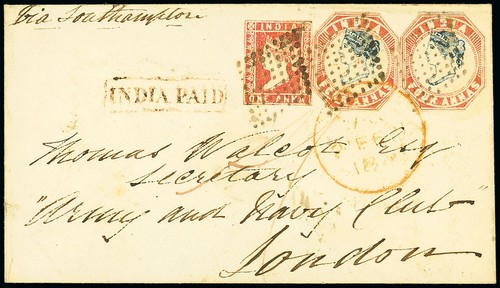 Via Southampton
INDIA
ONE ANNA
INDIA
FOUR ANNAS
INDIA
FOUR ANNAS
INDIA PAID
Thomas Walcot Esq
Secretary
"Army and Navy Club"
London